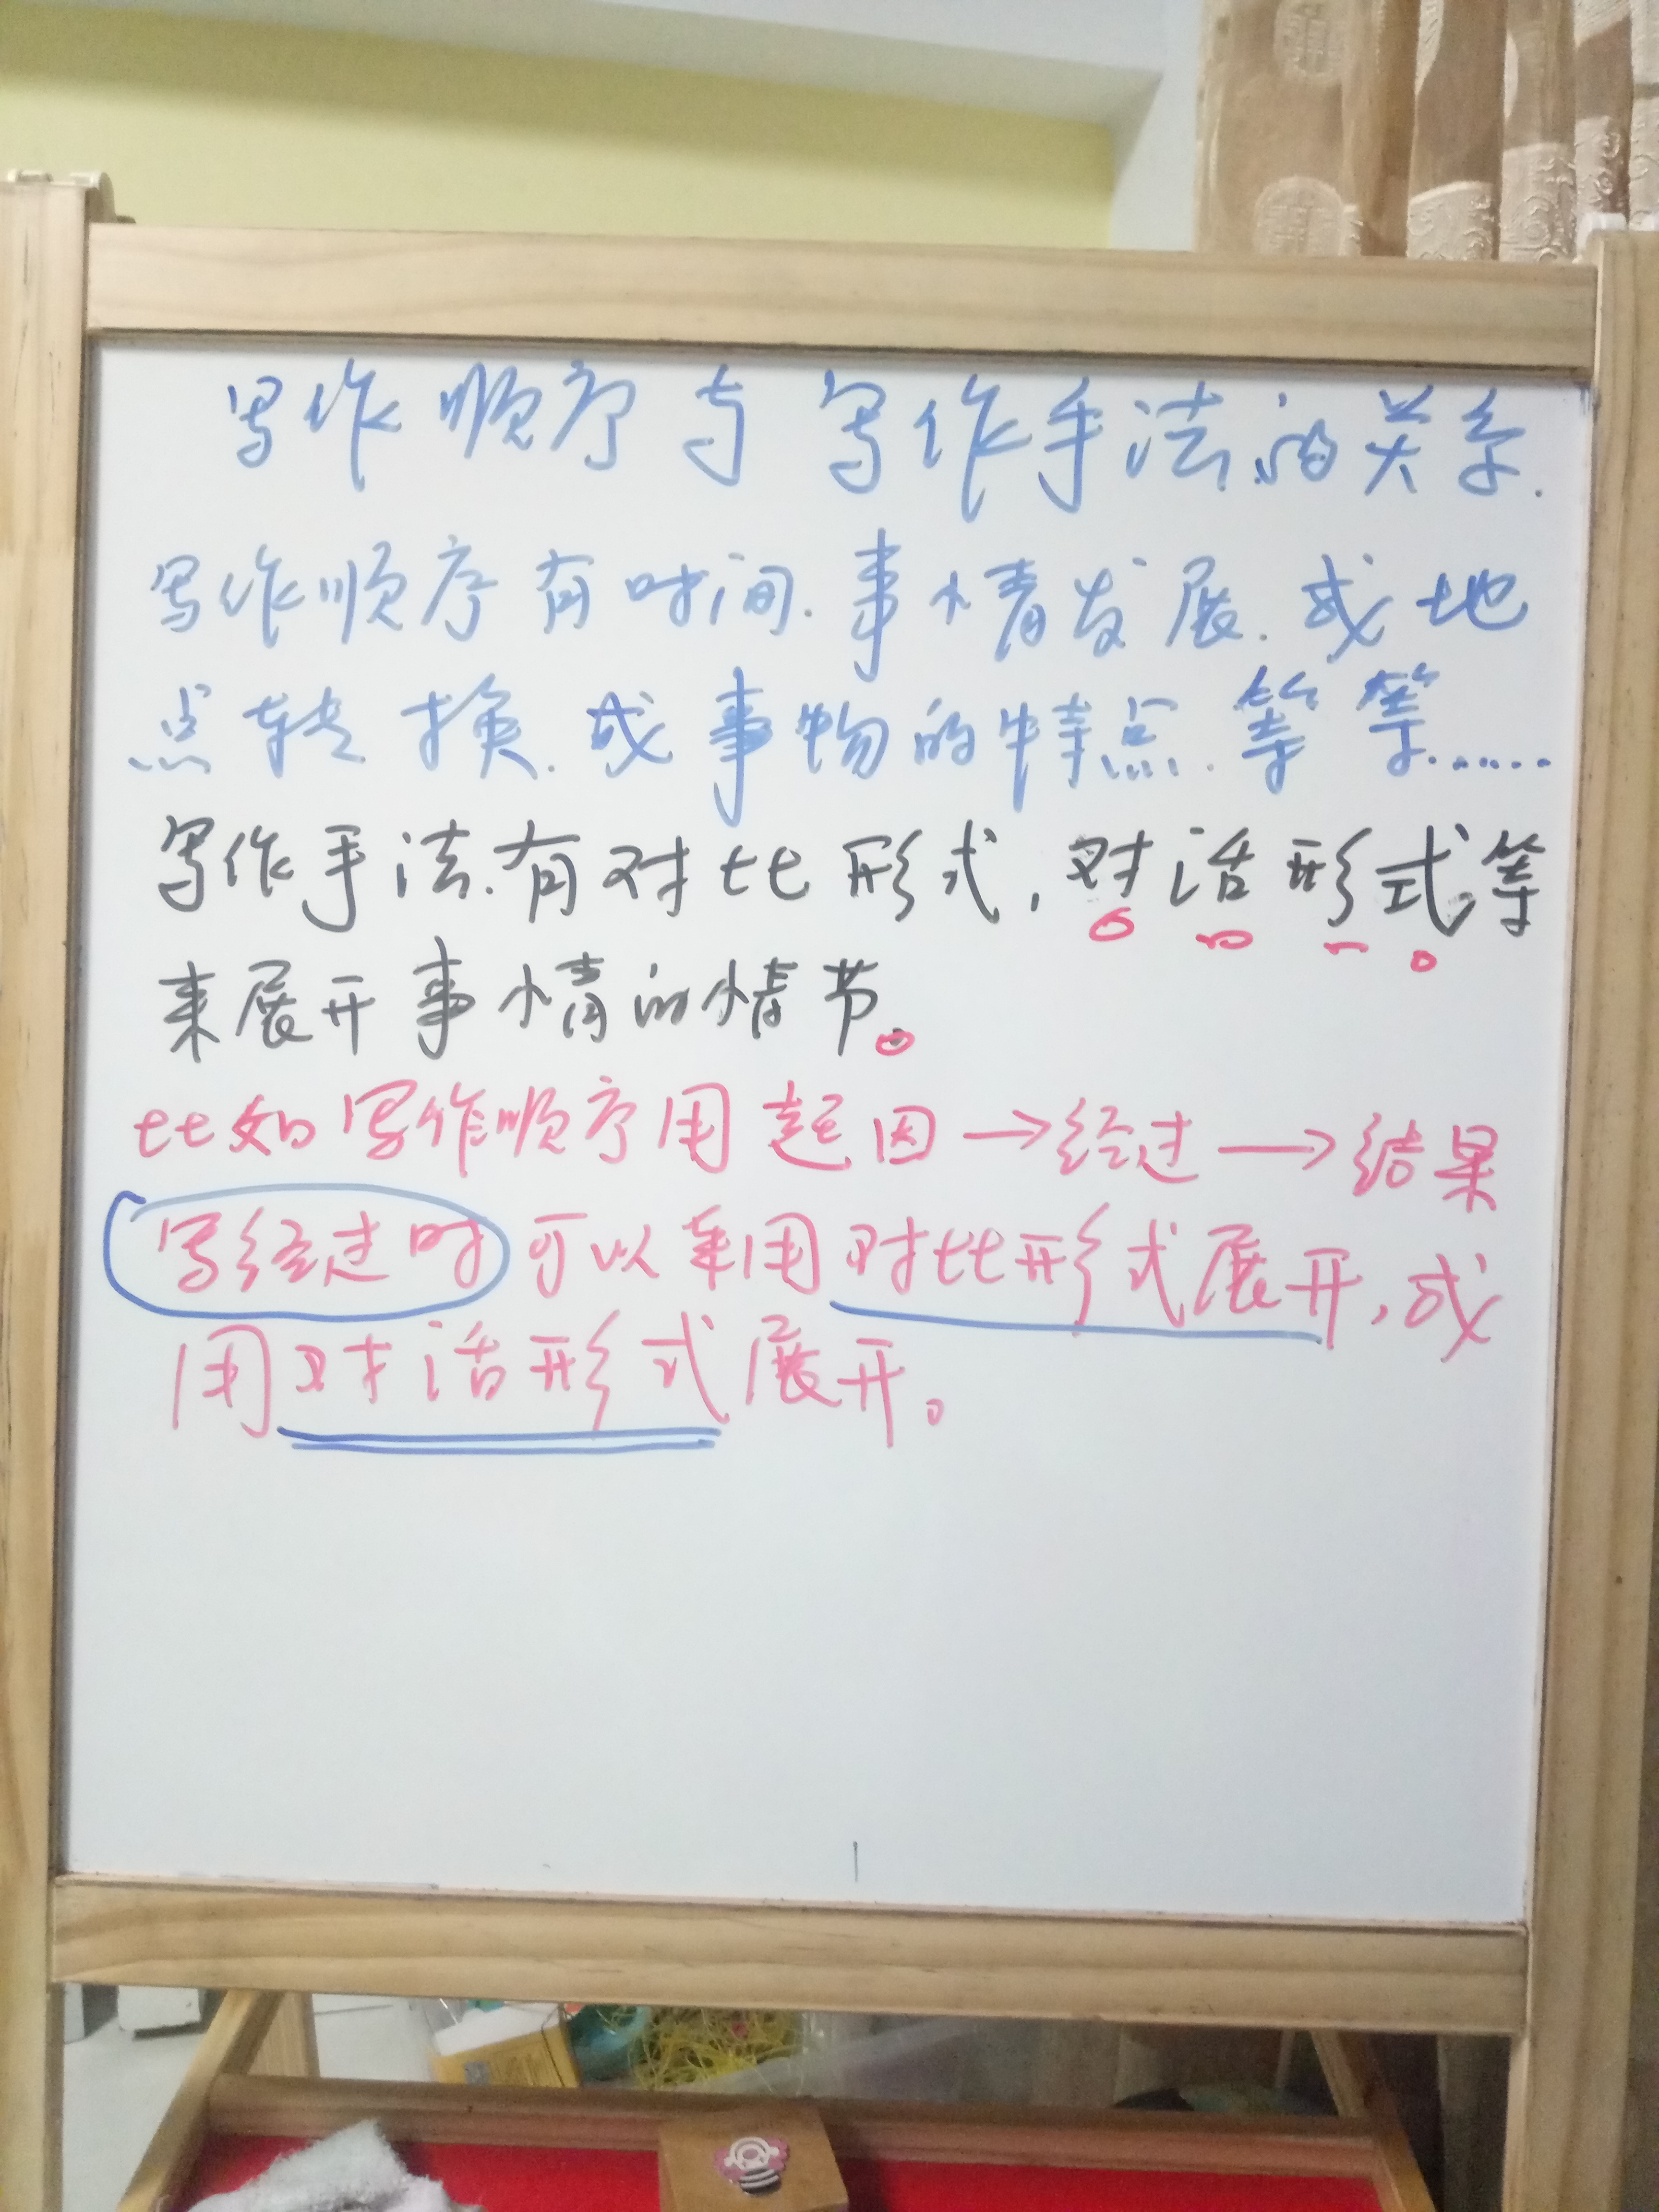 写作顺序与写作手法的关系.
写作顺序有时间.事情发展.或地
点转换.或事物的特点.等等......
写作手法.有对比形式,对话形式,等
来展开事情的情节。
比如写作顺序用起因→经过→结果
写经过时可以采用对比形式展开,或
用对话形式展开。